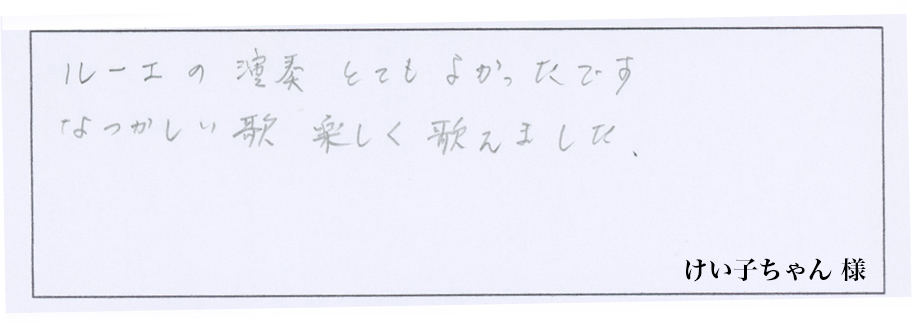 ルーエの演奏 とてもよかったです
なつかしい歌 楽しく歌えました、
けい子ちゃん 様